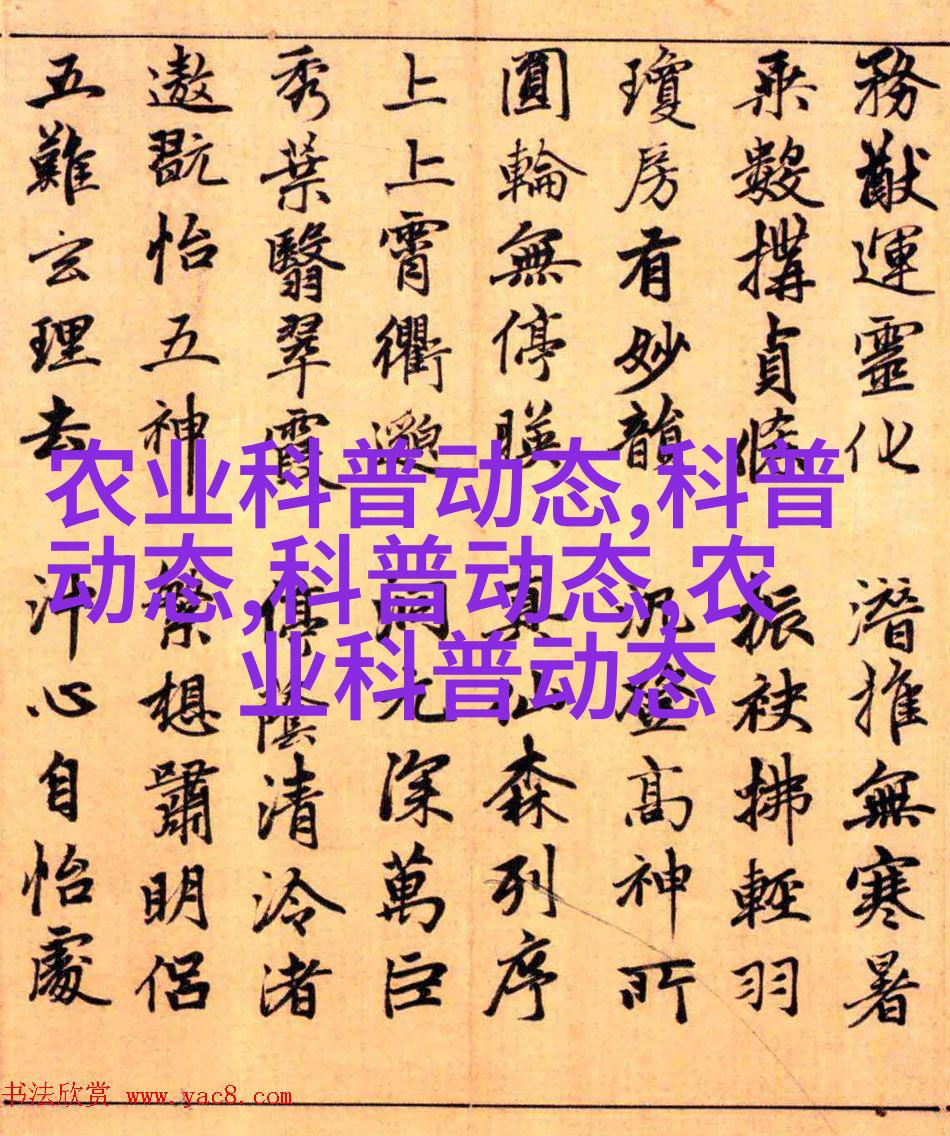 務猷運靈化 潛推無寒暑
乘數搆貞條 振袂拂輕羽
瓊房有妙韻 況登高神所
圓輪無停暎 真仙森列序
上上霄衢邈 洞元深萬巨
秀葉翳翠霞 停蔭清泠渚
遨翫怡五神 繁想嘯明侶
五難玄理去 沖心自怡處
农业科普动态,科普
动态,科普动态,农
业科普动态
书法欣赏 www.yac8.com